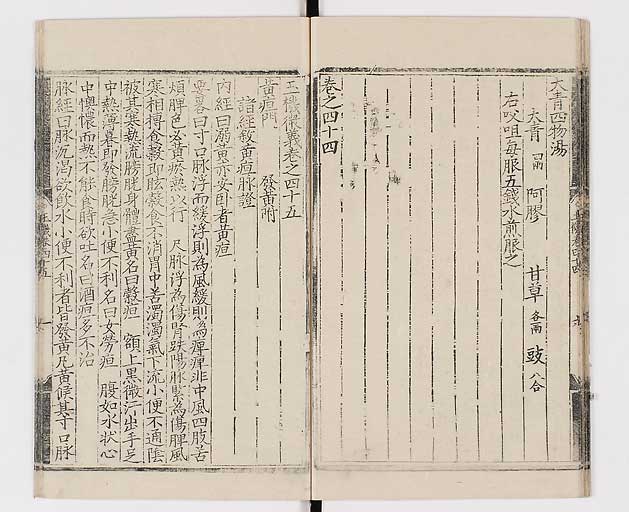 大青四物湯
大青 四兩 阿膠 甘草 各一兩 豉 八合
右㕮咀每服五錢水煎服之
卷之四十四
玉機微義卷之四十五
黃疸門 發黃附
諸經敘黃疸脉證
內經曰溺黃赤安卧者黃疸
要畧曰寸口脉浮而緩浮則為風緩則為痺痺非中風四肢苦
煩脾色必黃瘀熱以行 尺脉浮為傷腎趺陽脉緊為傷脾風
寒相搏食穀即眩穀食不消胃中苦濁濁氣下流小便不通陰
被其寒熱流膀胱身體盡黃名曰穀疸 額上黑微汗出手足
中熱薄暮即發膀胱急小便不利名曰女勞疸 腹如水狀心
中懊憹而熱不能食時欲吐名曰酒疸多不治
脉經曰脉沉渴欲飲水小便不利者皆發黃凡黃候其寸口脉